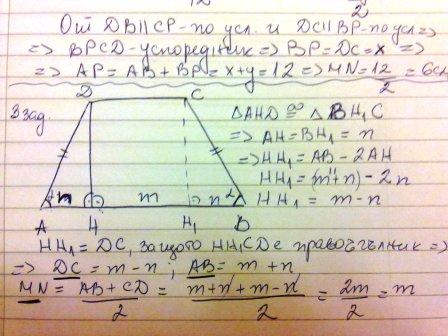 2
От DB||CP-по усл. и DC||BP-по усл =>
=> BPCD-успоредник => BP=DC=x =>
=> AP = AB + BP = x+y = 12 => MN = 12/2 = 6см
3 зад.
D C
△AHD ≅ △BH₁C
=> AH=BH₁ = n
=> HH₁ = AB - 2AH
HH₁ = (m+n) - 2n
HH₁ = m - n
n m n
A H H₁ B
HH₁ = DC, защото HH₁CD е правоъгълник =>
=> DC = m - n ; AB = m + n
MN = (AB + CD)/2 = (m+n+m-n)/2 = 2m/2 = m